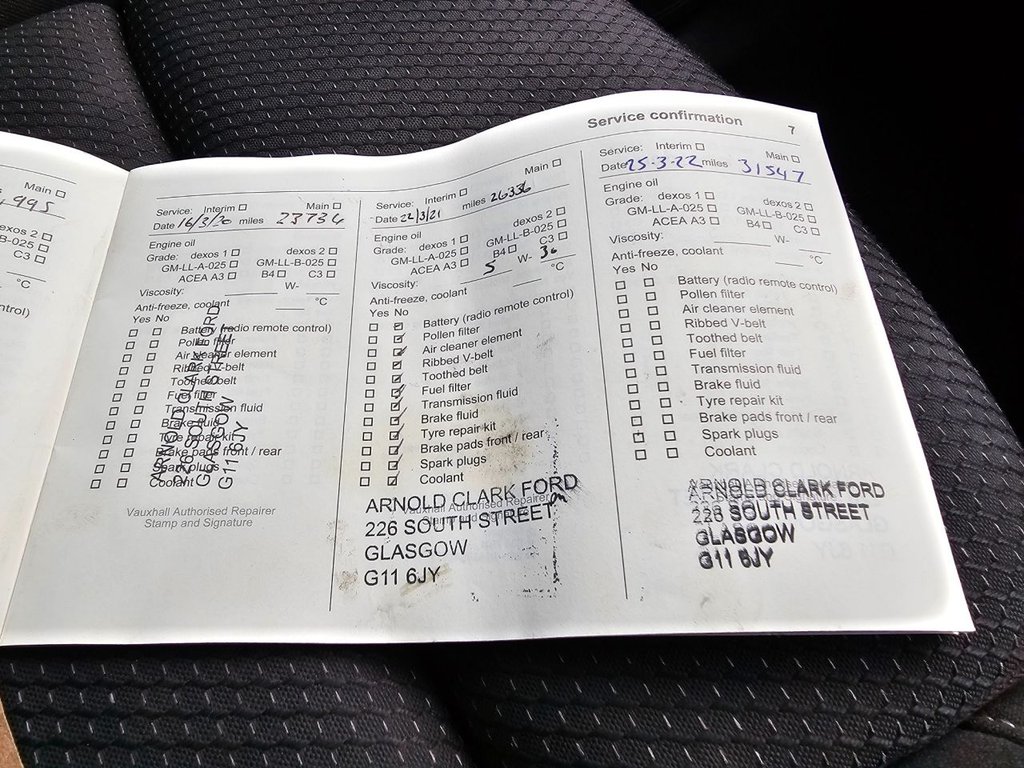 Service confirmation 7
Main
,995
dexos 2
L-B-025
C3
°C
ntrol)
Service: Interim Main
Date 16/3/20 miles 23734
Engine oil
Grade: dexos 1 dexos 2
GM-LL-A-025 GM-LL-B-025
ACEA A3 B4 C3
Viscosity: W-
Anti-freeze, coolant °C
Yes No
Battery (radio remote control)
Pollen filter
Air cleaner element
Ribbed V-belt
Toothed belt
Fuel filter
Transmission fluid
Brake fluid
Tyre repair kit
Brake pads front / rear
Spark plugs
Coolant
ARNOLD CLARK FORD
226 SOUTH STREET
GLASGOW
G11 6JY
Vauxhall Authorised Repairer
Stamp and Signature
Service: Interim Main
Date 22/3/21 miles 26336
Engine oil
Grade: dexos 1 dexos 2
GM-LL-A-025 GM-LL-B-025
ACEA A3 B4 C3
Viscosity: 5 W- 30
Anti-freeze, coolant °C
Yes No
Battery (radio remote control)
Pollen filter
Air cleaner element
Ribbed V-belt
Toothed belt
Fuel filter
Transmission fluid
Brake fluid
Tyre repair kit
Brake pads front / rear
Spark plugs
Coolant
Vauxhall Authorised Repairer
ARNOLD CLARK FORD
226 SOUTH STREET
GLASGOW
G11 6JY
Service: Interim Main
Date 25-3-22 miles 31547
Engine oil
Grade: dexos 1 dexos 2
GM-LL-A-025 GM-LL-B-025
ACEA A3 B4 C3
Viscosity: W-
Anti-freeze, coolant °C
Yes No
Battery (radio remote control)
Pollen filter
Air cleaner element
Ribbed V-belt
Toothed belt
Fuel filter
Transmission fluid
Brake fluid
Tyre repair kit
Brake pads front / rear
Spark plugs
Coolant
ARNOLD CLARK FORD
226 SOUTH STREET
GLASGOW
G11 6JY